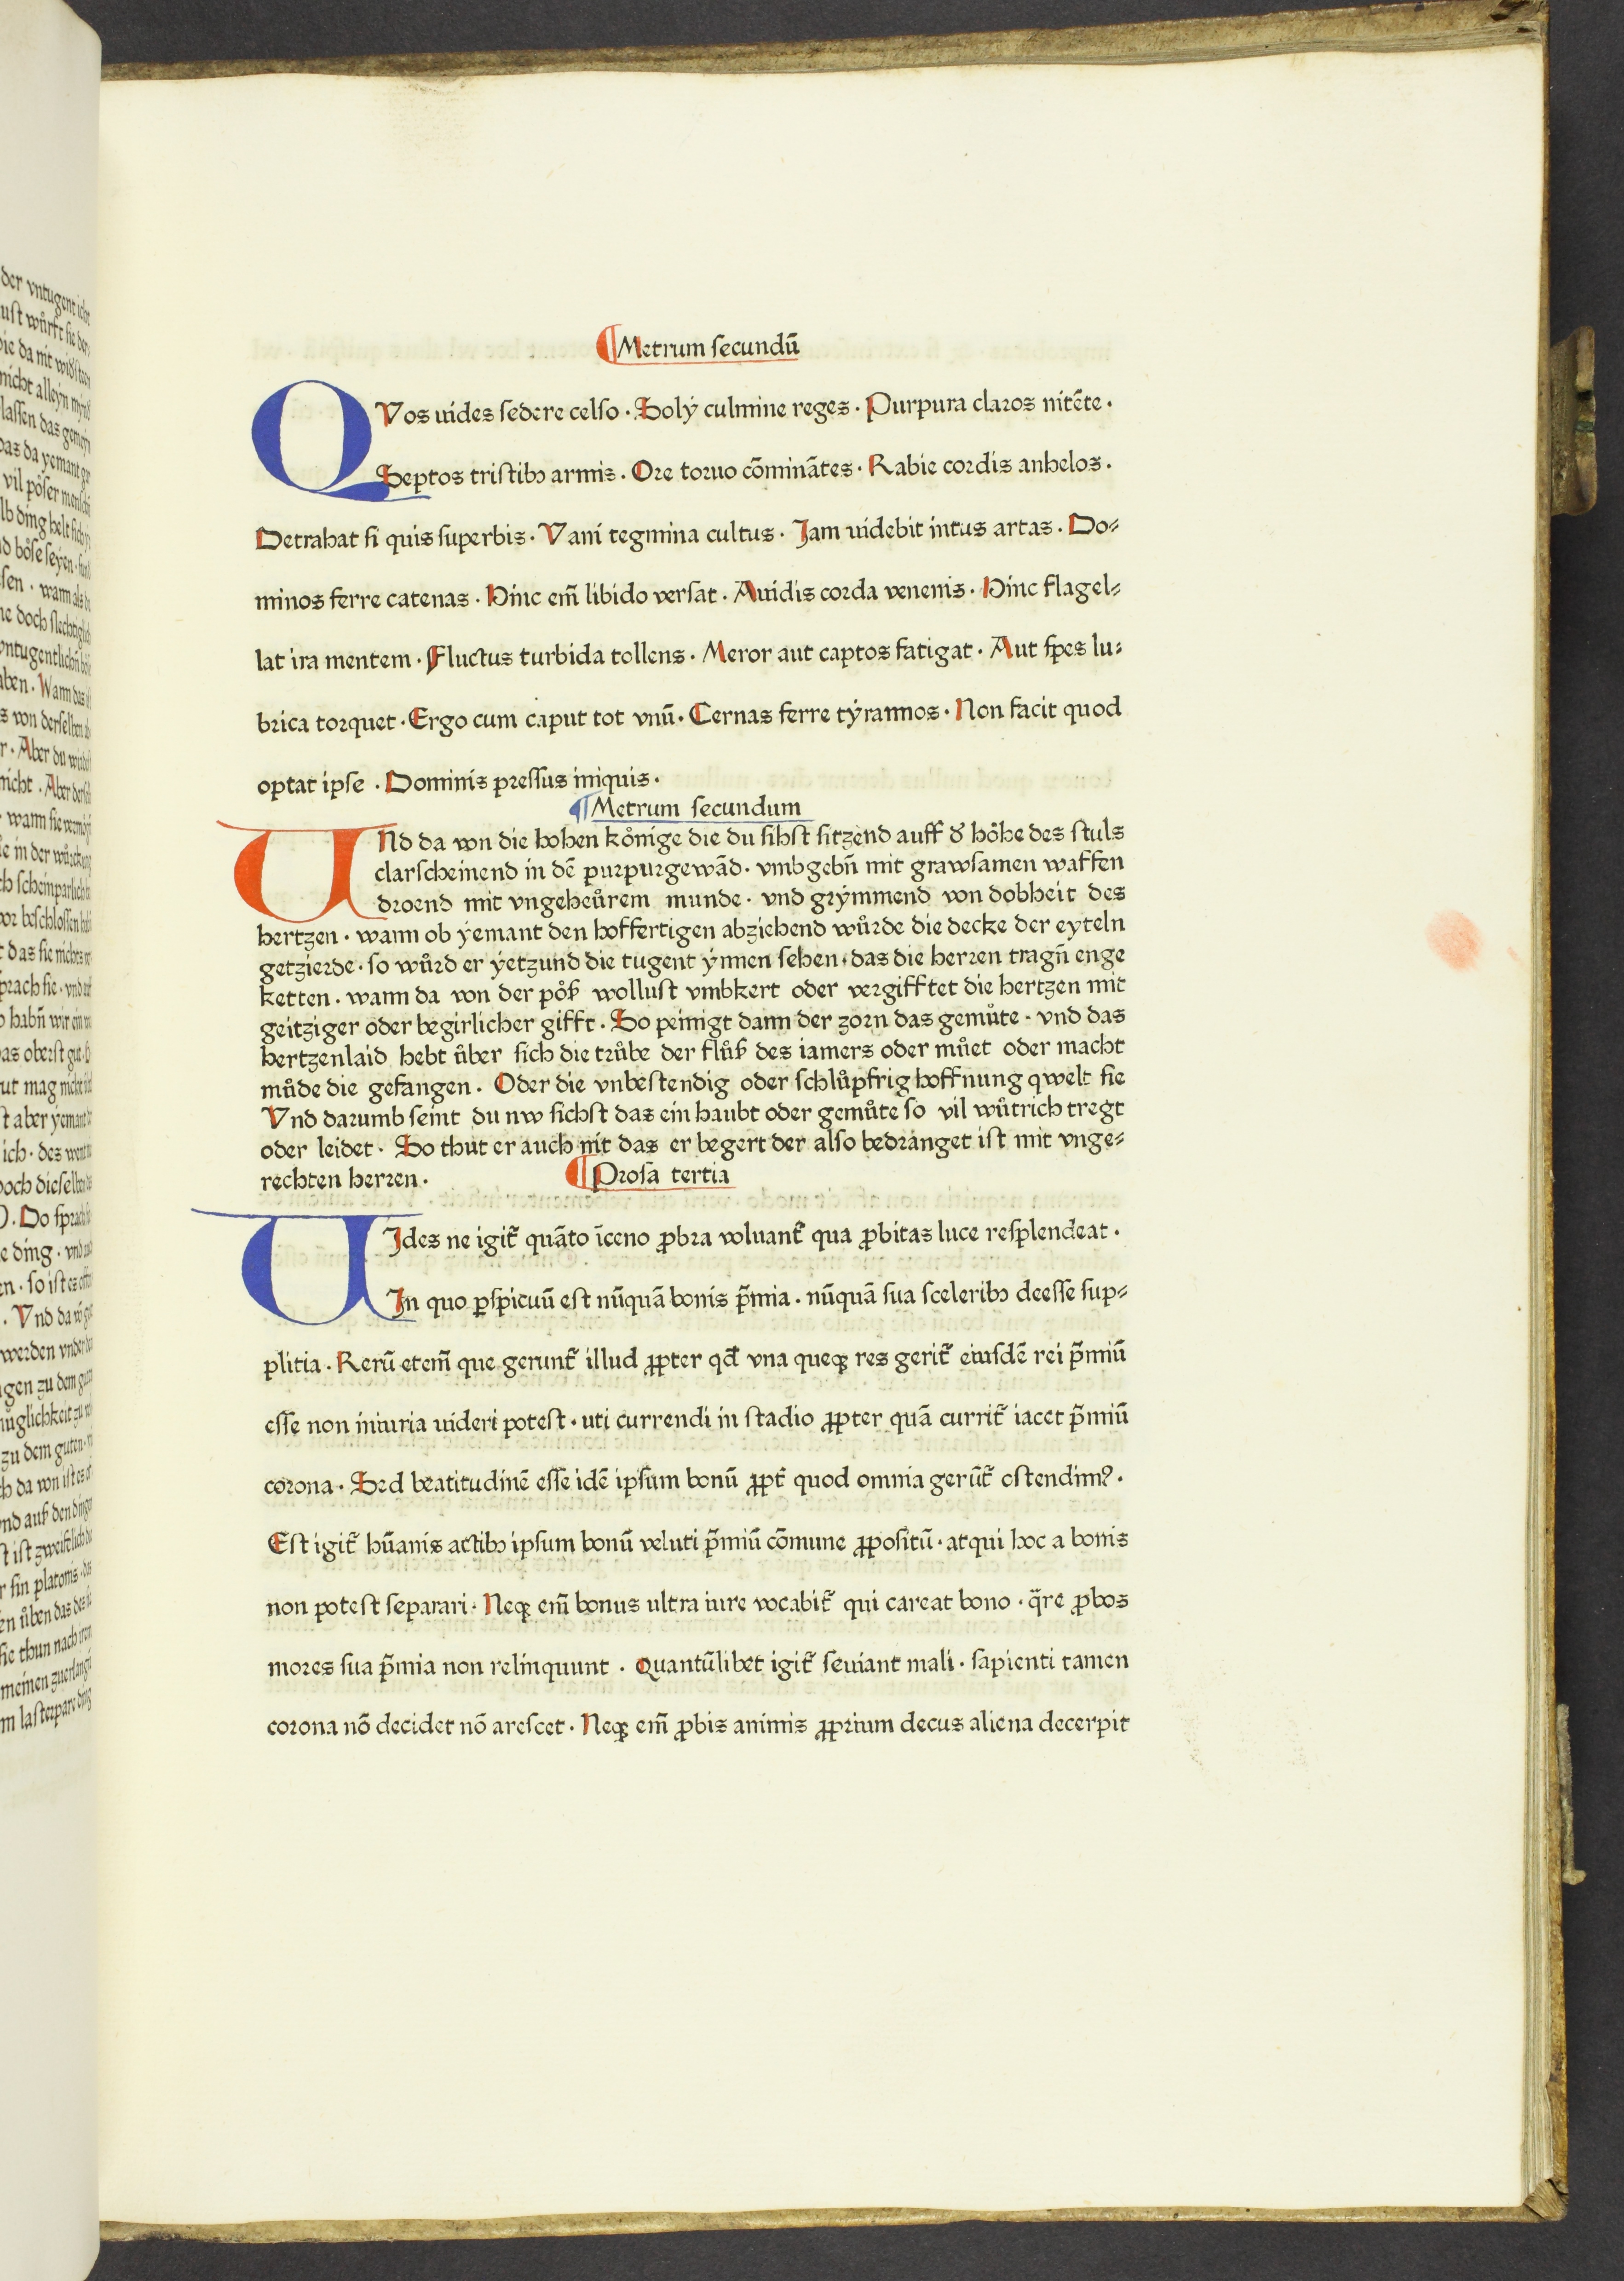 der vntugent icht
ust wůrft sie der
nicht alleyn
lassen das gemeyn
das da yemant
vil pöser menschen
lb ding helt sich
d böse seyen
sen . wann als
ne doch slechtiglich
vntugentlichen
aben . Wann das
s von derselben
r . Aber du wirdest
nicht . Aber
wann sie
e in der würckung
ch scheinparlich
vor beschlossen
t das sie nichts
sprach sie . vnd
habn̄ wir ein
as oberst gut
ut mag nicht
st aber yemant
ich . des
doch dieselben
. Do sprach
e ding . vnd
en . so ist es
. Vnd da
werden vnder
gen zu dem gut
müglichkeit zu
zu dem guten
ch da von ist es
nd auß den dingen
st ist zweifelich
r sin platonis
en üben das
sie thun nach irem
meinen zuerlangen
m lasterpare ding
¶Metrum secundū
QVos uides sedere celso . Solÿ culmine reges . Purpura claros nitēte .
Septos tristibꝫ armis . Ore toruo cōminātes . Rabie cordis anhelos .
Detrahat si quis superbis . Vani tegmina cultus . Jam uidebit intus artas . Do⸗
minos ferre catenas . Hinc em̄ libido versat . Auidis corda venenis . Hinc flagel⸗
lat ira mentem . Fluctus turbida tollens . Meror aut captos fatigat . Aut spes lu⸗
brica torquet . Ergo cum caput tot vnū . Cernas ferre tÿrannos . Non facit quod
optat ipse . Dominis pressus iniquis .
¶Metrum secundum
UNd da von die hohen kőnige die du sihst sitzend auff dˀ hőhe des stuls
clarscheinend in dē purpurgewād . vmbgebn̄ mit grawsamen waffen
droend mit vngeheůrem munde . vnd grÿmmend von dobheit des
hertzen . wann ob ÿemant den hoffertigen abziehend wůrde die decke der eyteln
getzierde . so wůrd er ÿetzund die tugent ÿnnen sehen . das die herren tragn̄ enge
ketten . wann da von der pőß wollust vmbkert oder vergifftet die hertzen mit
geitziger oder begirlicher gifft . So peinigt dann der zorn das gemůte . vnd das
hertzenlaid hebt ůber sich die trůbe der flůß des iamers oder můet oder macht
můde die gefangen . Oder die vnbestendig oder schlůpfrig hoffnung qwelt sie
Vnd darumb seint du nw sichst das ein haubt oder gemůte so vil wůtrich tregt
oder leidet . So thut er auch nit das er begert der also bedranget ist mit vnge⸗
rechten herren .
¶Prosa tertia
UJdes ne igit̃ quāto īceno ꝓbra voluant̃ qua ꝓbitas luce resplendeat .
In quo ꝑspicuū est nūquā bonis p̄mia . nūquā sua sceleribꝫ deesse sup⸗
plitia . Rerū etem̄ que gerunt̃ illud ꝓpter qd̄ vna queqꝫ res gerit̃ eiusdē rei p̄miū
esse non iniuria uideri potest . uti currendi in stadio ꝓpter quā currit̃ iacet p̄miū
corona . Sed beatitudinē esse idē ipsum bonū ꝓpt̃ quod omnia gerūt̃ ostendimꝰ .
Est igit̃ hūanis actibꝫ ipsum bonū veluti p̄miū cōmune ꝓpositū . atqui hoc a bonis
non potest separari . Neqꝫ em̄ bonus ultra iure vocabit̃ qui careat bono . q̄re ꝓbos
mores sua p̄mia non relinquunt . Quantūlibet igit̃ seuiant mali . sapienti tamen
corona nō decidet nō arescet . Neqꝫ em̄ ꝓbis animis ꝓprium decus aliena decerpit